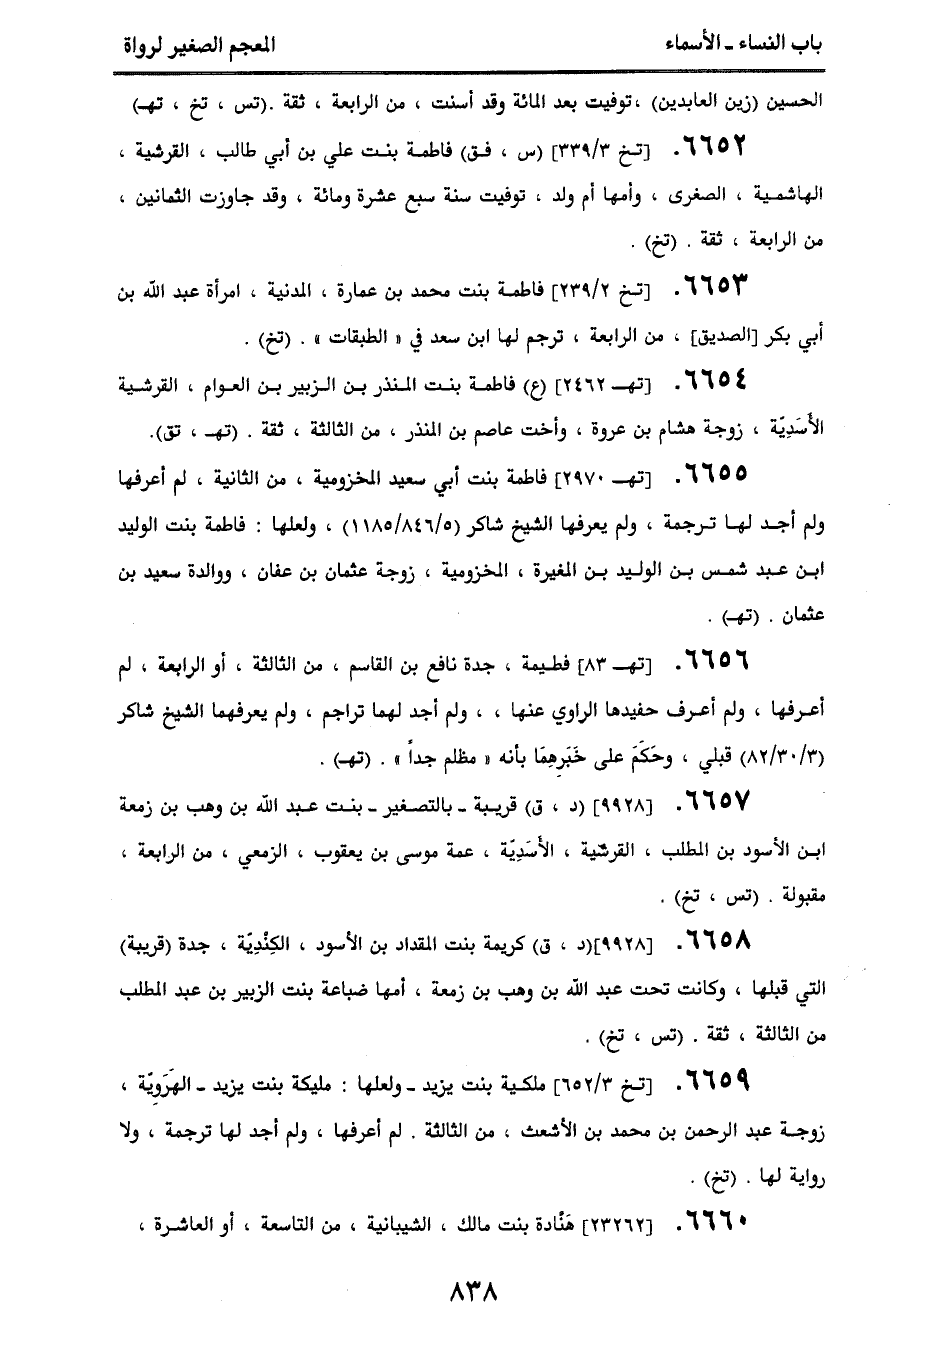 باب النساء ـ الأسماء
المعجم الصغير لرواة
الحسين (زين العابدين) ، توفيت بعد المائة وقد أسنت ، من الرابعة ، ثقة . (تس ، تخ ، تهـ)
٦٦٥٢. [تخ ٣/٣٣٩] (س ، فق) فاطمة بنت علي بن أبي طالب ، القرشية ،
الهاشمية ، الصغرى ، وأمها أم ولد ، توفيت سنة سبع عشرة ومائة ، وقد جاوزت الثمانين ،
من الرابعة ، ثقة . (تخ) .
٦٦٥٣. [تخ ٢/٢٣٩] فاطمة بنت محمد بن عمارة ، المدنية ، امرأة عبد الله بن
أبي بكر [الصديق] ، من الرابعة ، ترجم لها ابن سعد في « الطبقات » . (تخ) .
٦٦٥٤. [تهـ ٢٤٦٢] (ع) فاطمة بنت المنذر بن الزبير بن العوام ، القرشية
الأَسَدِيّة ، زوجة هشام بن عروة ، وأخت عاصم بن المنذر ، من الثالثة ، ثقة . (تهـ ، تق).
٦٦٥٥. [تهـ ٢٩٧٠] فاطمة بنت أبي سعيد المخزومية ، من الثانية ، لم أعرفها
ولم أجد لها ترجمة ، ولم يعرفها الشيخ شاكر (٥/٨٤٦/١١٨٥) ، ولعلها : فاطمة بنت الوليد
ابن عبد شمس بن الوليد بن المغيرة ، المخزومية ، زوجة عثمان بن عفان ، ووالدة سعيد بن
عثمان . (تهـ) .
٦٦٥٦. [تهـ ٨٣] فطيمة ، جدة نافع بن القاسم ، من الثالثة ، أو الرابعة ، لم
أعرفها ، ولم أعرف حفيدها الراوي عنها ، ، ولم أجد لهما تراجم ، ولم يعرفهما الشيخ شاكر
(٣/٣٠/٨٢) قبلي ، وحَكَمَ على خَبَرِهِمَا بأنه « مظلم جداً » . (تهـ) .
٦٦٥٧. [٩٩٢٨] (د ، ق) قريبة ـ بالتصغير ـ بنت عبد الله بن وهب بن زمعة
ابن الأسود بن المطلب ، القرشية ، الأَسَدِيّة ، عمة موسى بن يعقوب ، الزمعي ، من الرابعة ،
مقبولة . (تس ، تخ) .
٦٦٥٨. [٩٩٢٨](د ، ق) كريمة بنت المقداد بن الأسود ، الكِنْدِيّة ، جدة (قريبة)
التي قبلها ، وكانت تحت عبد الله بن وهب بن زمعة ، أمها ضباعة بنت الزبير بن عبد المطلب
من الثالثة ، ثقة . (تس ، تخ) .
٦٦٥٩. [تخ ٣/٦٥٢] ملكية بنت يزيد ـ ولعلها : مليكة بنت يزيد ـ الهَرَوِيّة ،
زوجة عبد الرحمن بن محمد بن الأشعث ، من الثالثة . لم أعرفها ، ولم أجد لها ترجمة ، ولا
رواية لها . (تخ) .
٦٦٦٠. [٢٣٢٦٢] هَنَّادة بنت مالك ، الشيبانية ، من التاسعة ، أو العاشرة ،
٨٣٨